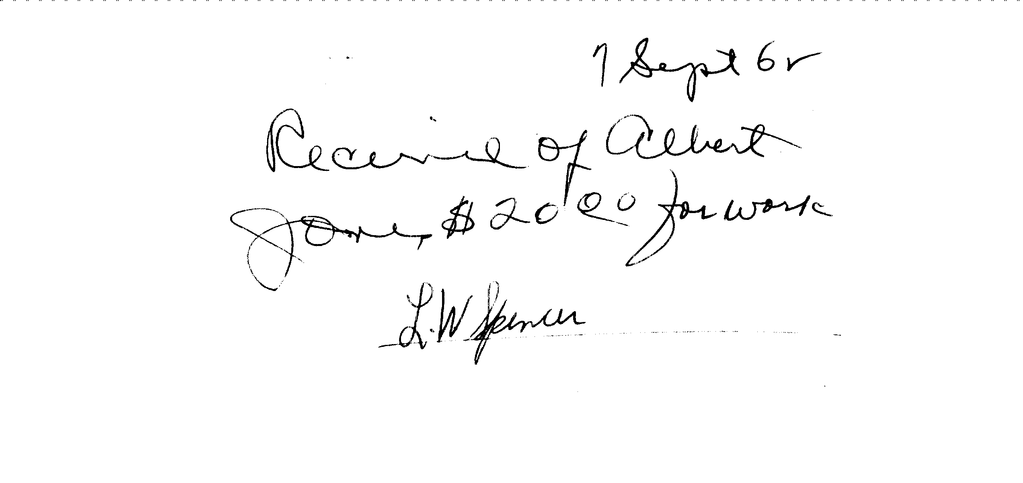 7 Sept 62
Received of Albert
Jones $20 00 for work
L.W Spencer